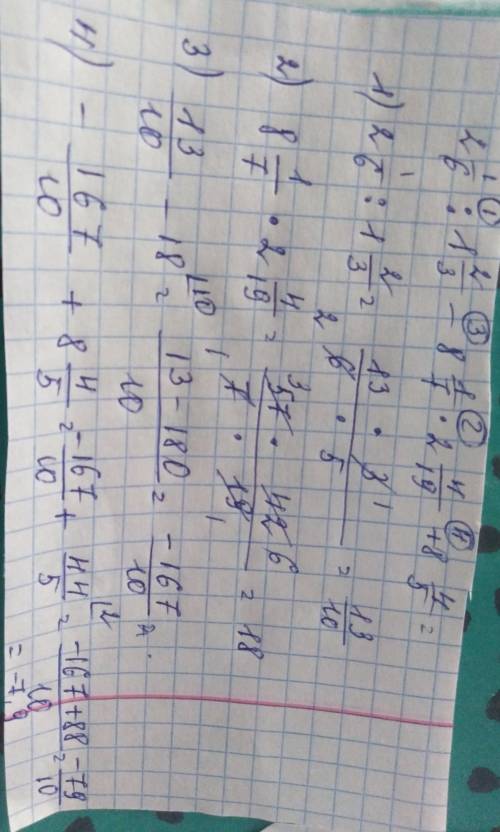 ① ③ ② ④
2 1/6 : 1 2/3 - 8 1/7 · 2 4/19 + 8 4/5 =
1) 2 1/6 : 1 2/3 = (13 · 3 1)/(2 6 · 5) = 13/10
2) 8 1/7 · 2 4/19 = (3 57 · 42 6)/(1 7 · 19 1) = 18
3) 13/10 - 18 ⌊10 = (13 - 180)/10 = -167/10
4) - 167/10 + 8 4/5 = -167/10 + 44/5 ⌊2 = (-167 + 88)/10 = -79/10
= -7,9